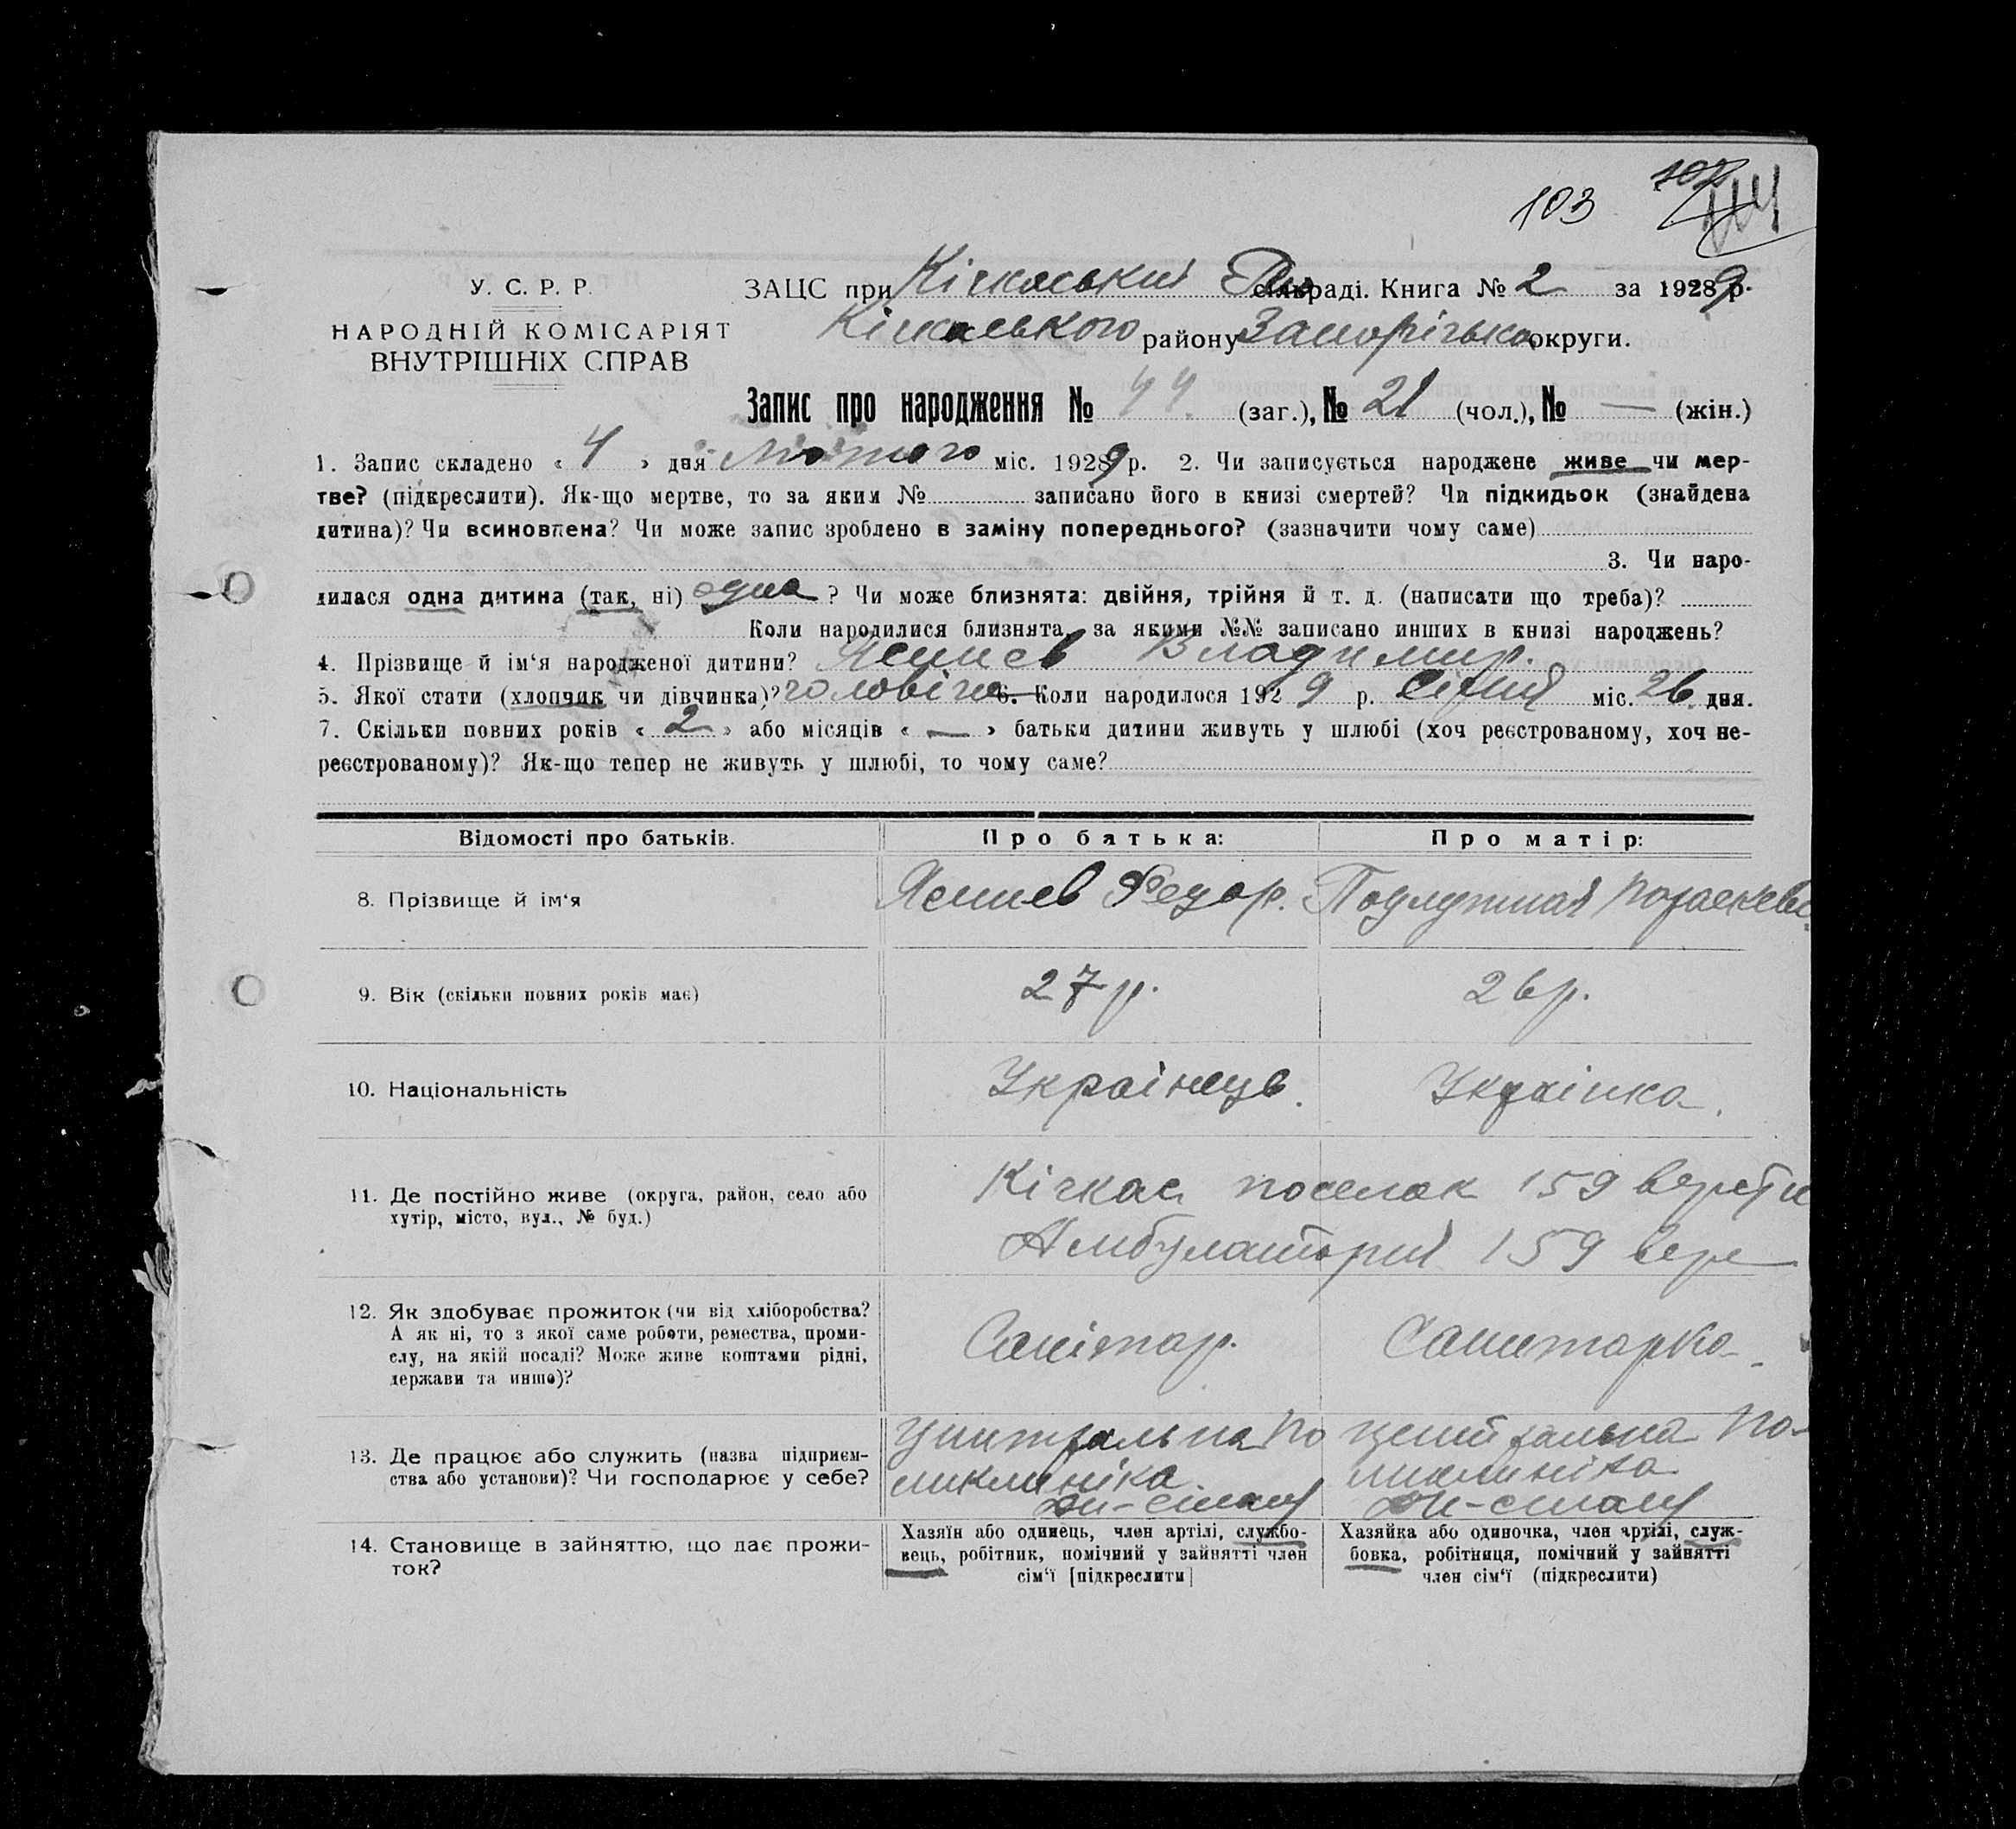 103
У. С. Р. Р.
НАРОДНІЙ КОМІСАРІЯТ
ВНУТРІШНІХ СПРАВ
ЗАЦС при Кічкаський сільраді. Книга № 2 за 1929 р.
Кічкаського району Запорізько округи.
Запис про народження № 44. (заг.), № 21 (чол.), № — (жін.)
1. Запис складено « 4 » дня Лютого міс. 1929 р. 2. Чи записується народжене живе чи мер-
тве? (підкреслити). Як-що мертве, то за яким № записано його в книзі смертей? Чи підкидьок (знайдена
дитина)? Чи всиновлена? Чи може запис зроблено в заміну попереднього? (зазначити чому саме)
3. Чи наро-
дилася одна дитина (так, ні) одна ? Чи може близнята: двійня, трійня й т. д. (написати що треба)?
Коли народилися близнята, за якими №№ записано инших в книзі народжень?
4. Прізвище й ім‘я народженої дитини? Владимир.
5. Якої стати (хлопчик чи дівчинка)? чоловіча 6. Коли народилося 1929 р. Січня міс. 26 дня.
7. Скільки повних років « 2 » або місяців « — » батьки дитини живуть у шлюбі (хоч реєстрованому, хоч не-
реєстрованому)? Як-що тепер не живуть у шлюбі, то чому саме?
Відомості про батьків. Про батька: Про матір:
8. Прізвище й ім‘я Федор. Подлужная
9. Вік (скільки повних років має) 27 р. 26 р.
10. Національність Українець. Українка.
11. Де постійно живе (округа, район, село або
хутір, місто, вул., № буд.)
Кічкас поселок 159 версти
Амбулатория 159 вер
12. Як здобуває прожиток (чи від хліборобства?
А як ні, то з якої саме роботи, ремества, проми-
слу, на якій посаді? Може живе коштами рідні,
держави та инше)?
Санітар. Санитарка.
13. Де працює або служить (назва підприєм-
ства або установи)? Чи господарює у себе?
Центральна По
ликлиніка
Центральна По-
ликлиніка
14. Становище в зайняттю, що дає прожи-
ток?
Хазяїн або одинець, член артілі, службо-
вець, робітник, помічний у зайнятті член
сім‘ї [підкреслити]
Хазяйка або одиночка, член артілі, служ-
бовка, робітниця, помічний у зайнятті
член сім‘ї (підкреслити)